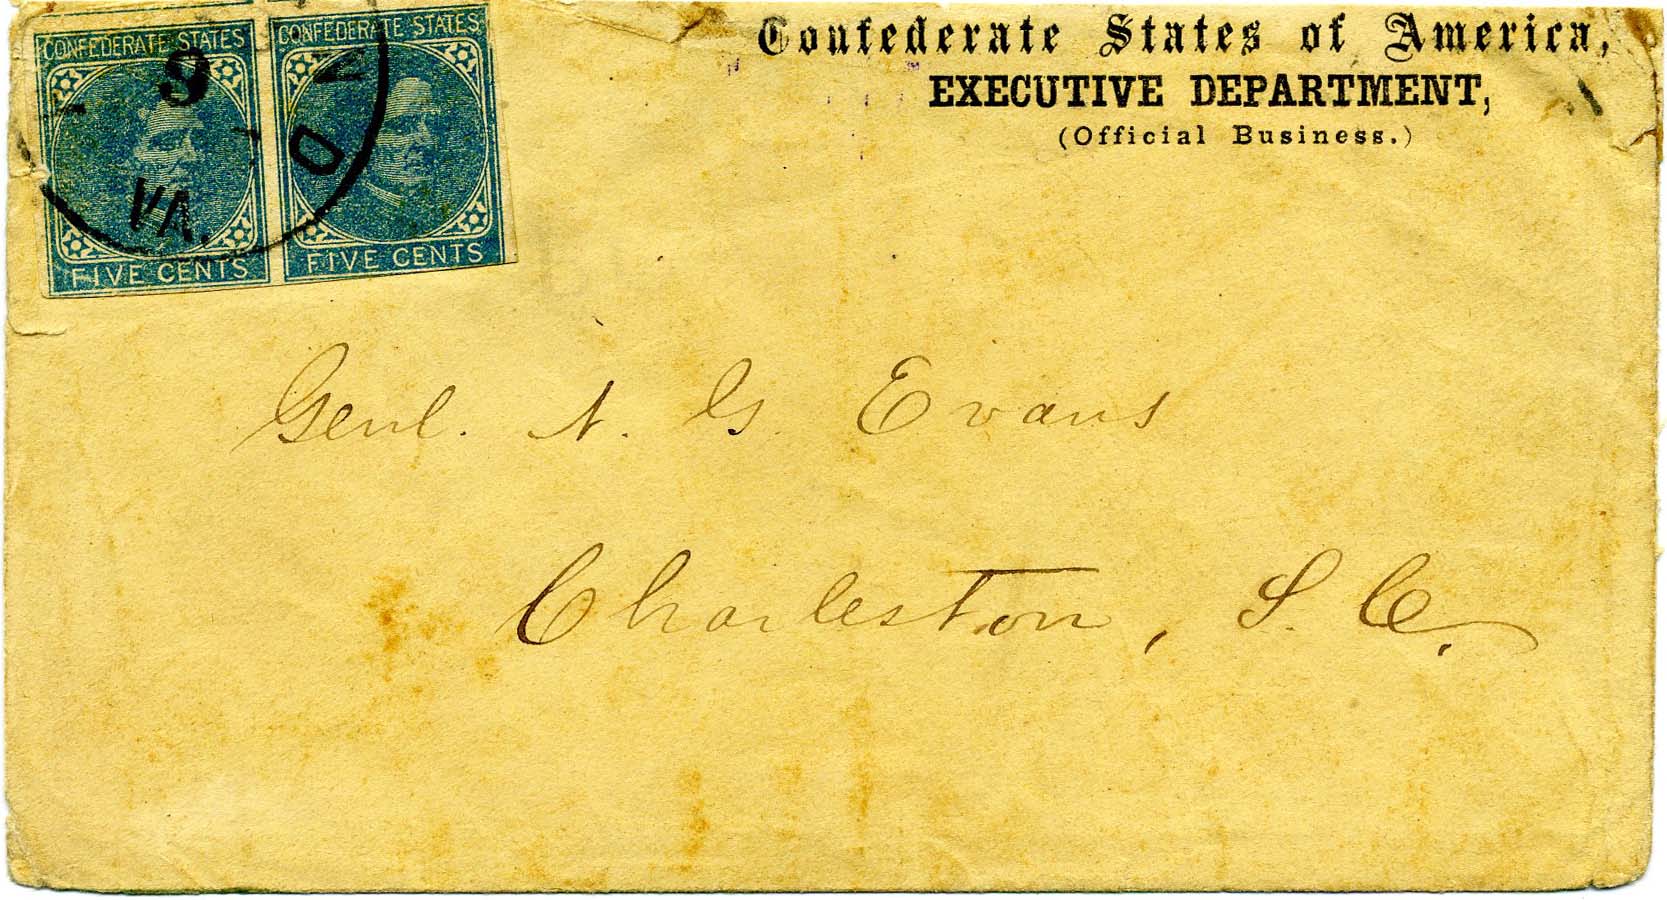 CONFEDERATE STATES
FIVE CENTS
CONFEDERATE STATES
FIVE CENTS
9
VA.
O N D
Confederate States of America,
EXECUTIVE DEPARTMENT,
(Official Business.)
Genl. N. G. Evans
Charleston, S. C.